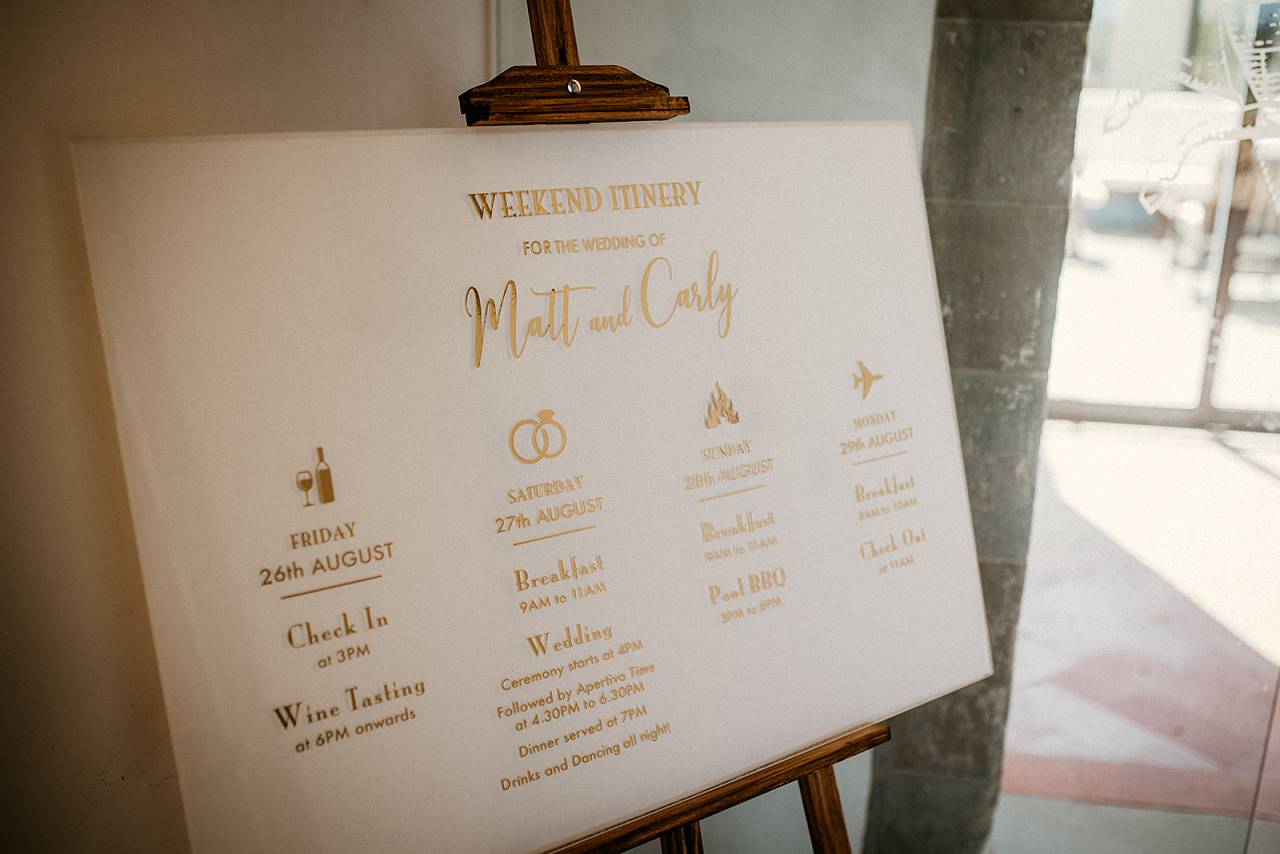 WEEKEND ITINERY
FOR THE WEDDING OF
Matt and Carly
FRIDAY
26th AUGUST
Check In
at 3PM
Wine Tasting
at 6PM onwards
SATURDAY
27th AUGUST
Breakfast
9AM to 11AM
Wedding
Ceremony starts at 4PM
Followed by Apertivo Time
at 4.30PM to 6.30PM
Dinner served at 7PM
Drinks and Dancing all night!
SUNDAY
28th AUGUST
Breakfast
9AM to 11AM
Pool BBQ
3PM to 6PM
MONDAY
29th AUGUST
Breakfast
8AM to 10AM
Check Out
at 11AM